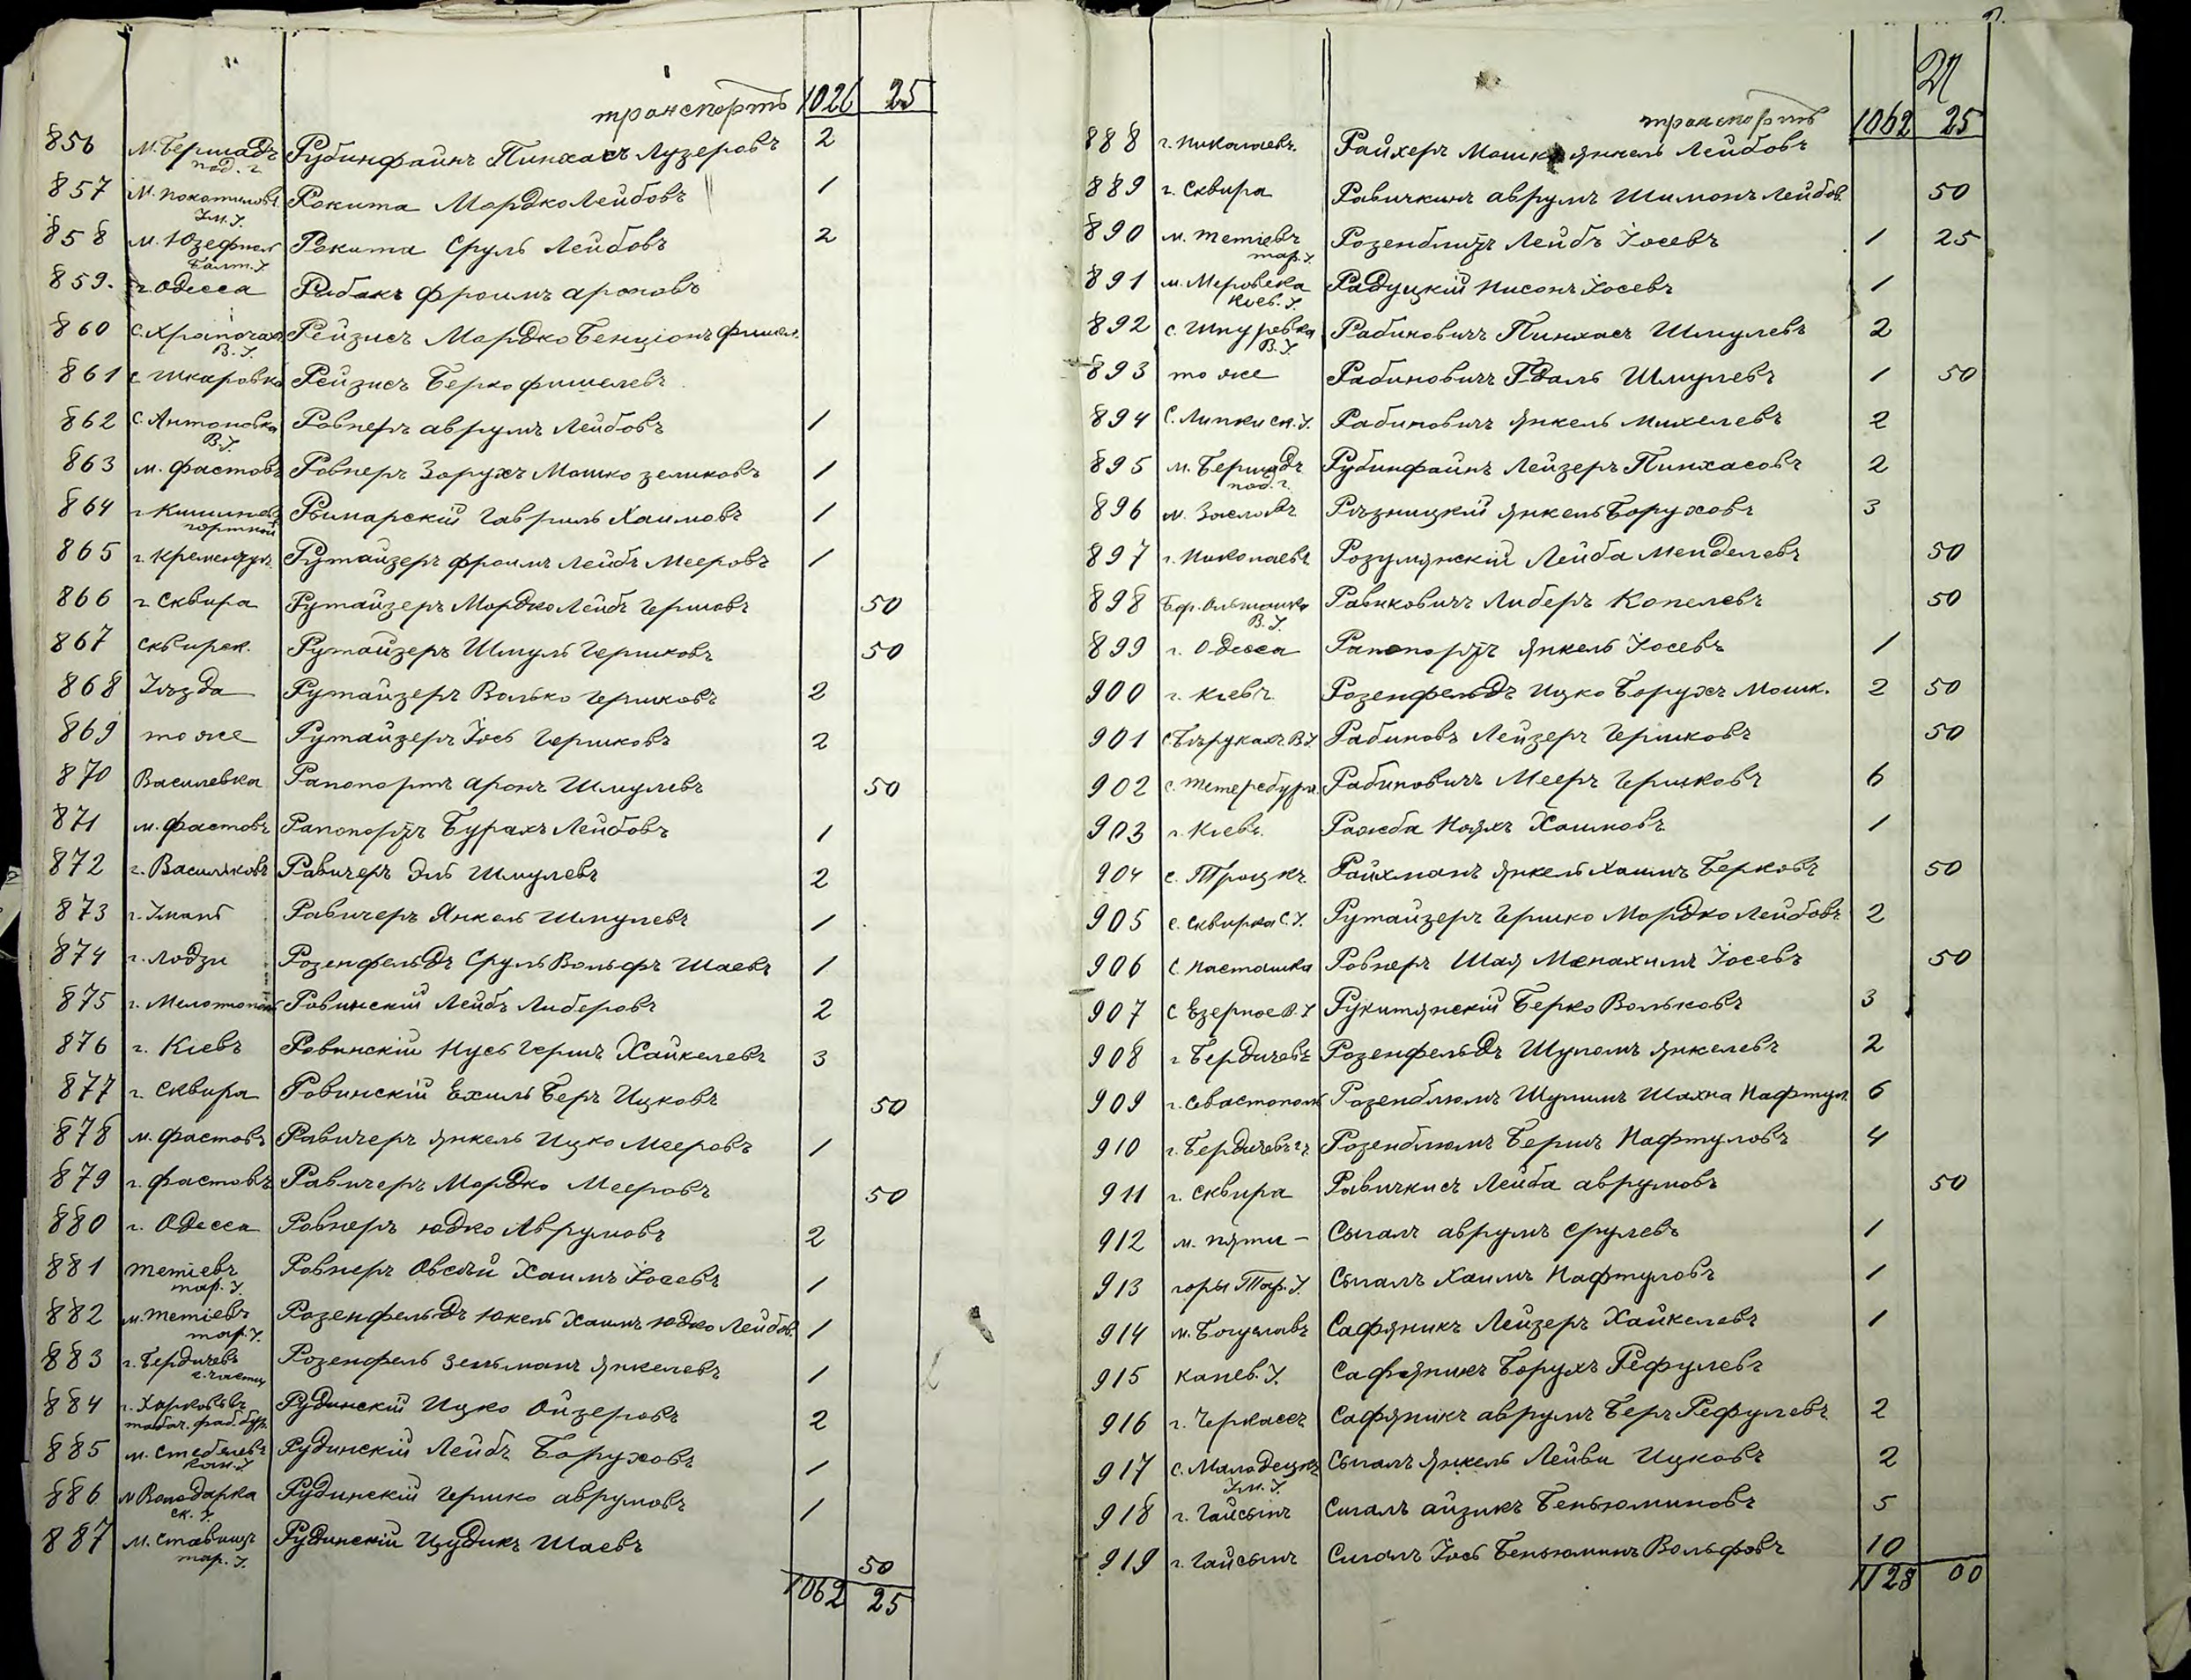 транспортъ 1026 25
856 м. Бершадь Рубинфайнъ Пинхасъ Лузеровъ 2
под. г.
857 м. Покотилово Рокита Мордко Лейбовъ 1
Ум. У.
858 м. Юзефполь Рокита Сруль Лейбовъ 2
Балт. У.
859. г. Одесса Рибакъ Фроимъ Ароновъ
860 с. Храпачахъ Рейзисъ Мордко Бенціонъ Фишел.
В. У.
861 с. Шкаровка Рейзисъ Берко Фишелевъ
862 с. Антоновка Ровнеръ Аврумъ Лейбовъ 1
В. У.
863 м. Фастовъ Ровнеръ Зорухъ Мошко Зеликовъ 1
864 г. Кишинев Рымарскій Гавриль Хаимовъ 1
портной
865 г. Кременчугъ Рутайзеръ Фроимъ Лейбъ Мееровъ 1
866 г. Сквира Рутайзеръ Мордко Лейбъ Гершовъ 50
867 Сквирск. Рутайзеръ Шмуль Гершковъ 50
868 Уѣзда Рутайзеръ Волько Гершковъ 2
869 то же Рутайзеръ Іось Гершковъ 2
870 Василевка Рапопортъ Аронъ Шмулевъ 50
871 м. Фастовъ Рапопортъ Бурахъ Лейбовъ 1
872 г. Васильковъ Равичеръ Эль Шмулевъ 2
873 г. Умань Равичеръ Янкель Шмулевъ 1
874 г. Лодзи Розенфельдъ Сруль Вольфъ Шаевъ 1
875 г. Мелотополь Ровинскій Лейбъ Либеровъ 2
876 г. Кіевъ Ровинскій Нусь Гершъ Хайкелевъ 3
877 г. Сквира Ровинскій Ехиль Беръ Ицковъ 50
878 м. Фастовъ Равичеръ Янкель Ицко Мееровъ 1
879 г. Фастовъ Равичеръ Мордко Мееровъ 50
880 г. Одесса Ровнеръ Юдко Аврумовъ 2
881 Тетіевъ Ровнеръ Овсѣй Хаимъ Іосевъ 1
тар. У.
882 м. Тетіевъ Розенфельдъ Юкель Хаимъ Юдко Лейбов. 1
тар. У.
883 г. Бердичевъ Розенфель Зельманъ Янкелевъ 1
884 г. Харьковѣ Рудинскій Ицко Ойзеровъ 2
табач. фаб.
885 м. Стеблевъ Рудинскій Лейбъ Боруховъ 1
кан. У.
886 м. Володарка Рудинскій Гершко Аврумовъ 1
ск. У.
887 м. Ставищъ Рудинскій Цудикъ Шаевъ 50
тар. У.
1062 25
транспортъ 1062 25
888 г. Николаевъ. Райхеръ Мошко Янкель Лейбовъ
889 г. Сквира Равичкинъ Аврумъ Шимонъ Лейбов. 50
890 м. Тетіевъ Розенблитъ Лейбъ Іосевъ 1 25
тар. У.
891 м. Меровека Радуцкій Нисонъ Іосевъ 1
Кіев. У.
892 с. Шпуревка Рабиновичъ Пинхасъ Шмулевъ 2
В. У.
893 то же Рабиновичъ Гдаль Шмулевъ 1 50
894 с. Липки ск. У. Рабиновичъ Янкель Михелевъ 2
895 м. Бершадь Рубинфайнъ Лейзеръ Пинхасовъ 2
под. г.
896 м. Заславъ Рѣзницкій Янкель Боруховъ 3
897 г. Николаевъ Розумянскій Лейба Менделевъ 50
898 Равиковичъ Либеръ Копелевъ 50
В. У.
899 г. Одесса Рапопортъ Янкель Іосевъ 1
900 г. Кіевъ Розенфельдъ Ицко Борухъ Мошк. 2 50
901 с. Бѣрукахъ В. У. Рабиновъ Лейзеръ Гершковъ 50
902 с. Петербург. Рабиновичъ Мееръ Гершковъ 6
903 г. Кіевъ. Ражба Нояхъ Хаимовъ 1
904 с. Троцкъ Райхманъ Янкель Хаимъ Берковъ 50
905 с. Сквирка С. У. Рутайзеръ Гершко Мордко Лейбовъ 2
906 с. Насташка Ровнеръ Шая Менахимъ Іосевъ 50
907 с. Езерное В. У. Рукитянскій Берко Вольковъ 3
908 г. Бердичевъ Розенфельдъ Шуломъ Янкелевъ 2
909 г. Севастополь Розенблюмъ Шулимъ Шахна Нафтул. 6
910 г. Бердичевъ Розенблюмъ Бершъ Нафтуловъ 4
911 г. Сквира Равичкисъ Лейба Аврумовъ 50
912 м. Пяти- Сыгалъ Аврумъ Срулевъ 1
913 горы Тар. У. Сыгалъ Хаимъ Нафтуловъ 1
914 м. Богуславъ Сафяникъ Лейзеръ Хайкелевъ 1
915 Канев. У. Сафяникъ Борухъ Рефулевъ
916 г. Черкассъ Сафяникъ Аврумъ Беръ Рефулевъ 2
917 с. Малодецкъ Сыгалъ Янкель Лейви Ицковъ 2
Ум. У.
918 г. Гайсынъ Сигалъ Айзикъ Беньюминовъ 5
919 г. Гайсынъ Сигалъ Іось Беньюминъ Вольфовъ 10
1128 00